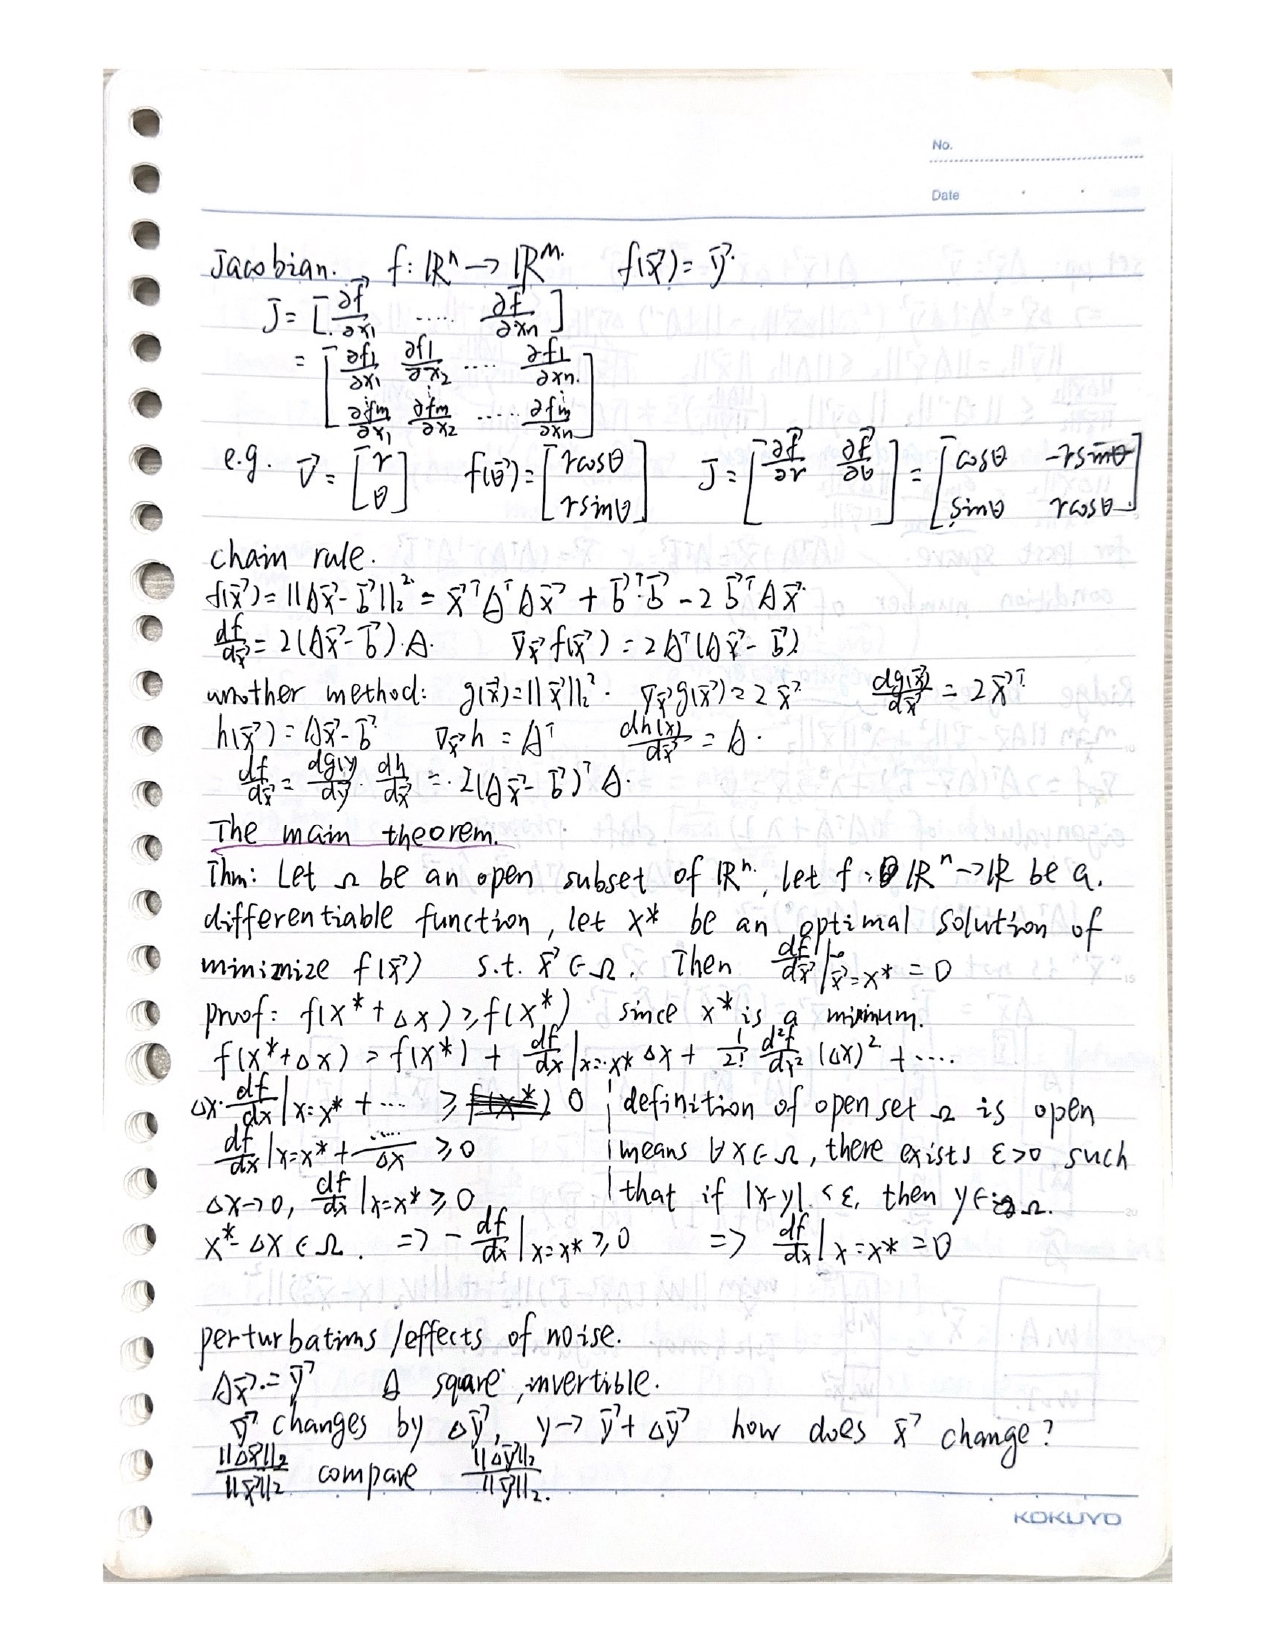 No.
Date
Jacobian. f: ℝⁿ → ℝᵐ. f(x⃗) = y⃗.
J = [∂f⃗/∂x₁ ..... ∂f⃗/∂xₙ]
= [∂f₁/∂x₁ ∂f₁/∂x₂ .... ∂f₁/∂xₙ.
⋮ ⋮ ⋮
∂fm/∂x₁ ∂fm/∂x₂ ..... ∂fm/∂xₙ]
e.g. v⃗ = [r θ] f(θ⃗) = [rcosθ rsinθ] J = [∂f⃗/∂r ∂f⃗/∂θ] = [cosθ -rsinθ sinθ rcosθ]
chain rule.
f(x⃗) = ||Ax⃗ - b⃗||₂² = x⃗ᵀAᵀAx⃗ + b⃗ᵀb⃗ - 2b⃗ᵀAx⃗.
df/dx⃗ = 2(Ax⃗ - b⃗)·A. ∇x⃗ f(x⃗) = 2Aᵀ(Ax⃗ - b⃗)
another method: g(x⃗) = ||x⃗||₂². ∇x⃗ g(x⃗) = 2x⃗ dg(x⃗)/dx⃗ = 2x⃗ᵀ
h(x⃗) = Ax⃗ - b⃗ ∇x⃗ h = Aᵀ dh(x)/dx⃗ = A.
df/dx⃗ = dg(y)/dy⃗ · dh/dx⃗ = 2(Ax⃗ - b⃗)ᵀA.
The main theorem.
Thm: Let Ω be an open subset of ℝⁿ, let f: ℝⁿ → ℝ be a.
differentiable function, let x* be an optimal solution of
minimize f(x⃗) s.t. x⃗ ∈ Ω. Then df/dx⃗ |x⃗=x* = 0
proof: f(x* + Δx) ≥ f(x*) since x* is a minimum.
f(x*+Δx) = f(x*) + df/dx |x=x* Δx + 1/2! d²f/dx² (Δx)² + ....
Δx·df/dx |x=x* + ... ≥ f(x*) 0 definition of open set Ω is open
df/dx |x=x* + ...../Δx ≥ 0 means ∀x∈Ω, there exists ε>0 such
Δx→0, df/dx |x=x* ≥ 0 that if |x-y| < ε, then y∈Ω.
x*-Δx ∈ Ω. => -df/dx |x=x* ≥ 0 => df/dx |x=x* = 0
perturbations / effects of noise.
Ax⃗ = y⃗ A square, invertible.
y⃗ changes by Δy⃗, y → y⃗ + Δy⃗ how does x⃗ change?
||Δx⃗||₂/||x⃗||₂ compare ||Δy⃗||₂/||y⃗||₂.
KOKUYO